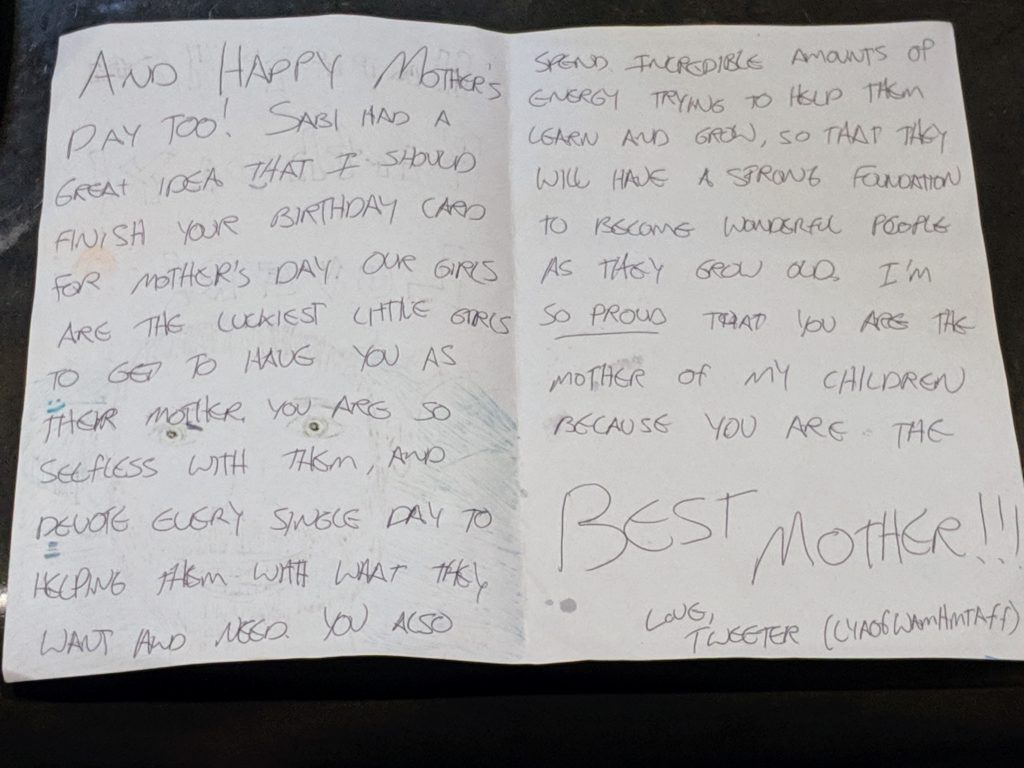 AND HAPPY MOTHER'S
DAY TOO! SABI HAD A
GREAT IDEA THAT I SHOULD
FINISH YOUR BIRTHDAY CARD
FOR MOTHER'S DAY. OUR GIRLS
ARE THE LUCKIEST LITTLE GIRLS
TO GET TO HAVE YOU AS
THEIR MOTHER. YOU ARE SO
SELFLESS WITH THEM, AND
DEVOTE EVERY SINGLE DAY TO
HELPING THEM WITH WHAT THEY
WANT AND NEED. YOU ALSO
SPEND INCREDIBLE AMOUNTS OF
ENERGY TRYING TO HELP THEM
LEARN AND GROW, SO THAT THEY
WILL HAVE A STRONG FOUNDATION
TO BECOME WONDERFUL PEOPLE
AS THEY GROW OLD. I'M
SO PROUD THAT YOU ARE THE
MOTHER OF MY CHILDREN
BECAUSE YOU ARE THE
BEST MOTHER!!!
LOVE,
TWEETER (LYAOFWAMHMTAFF)